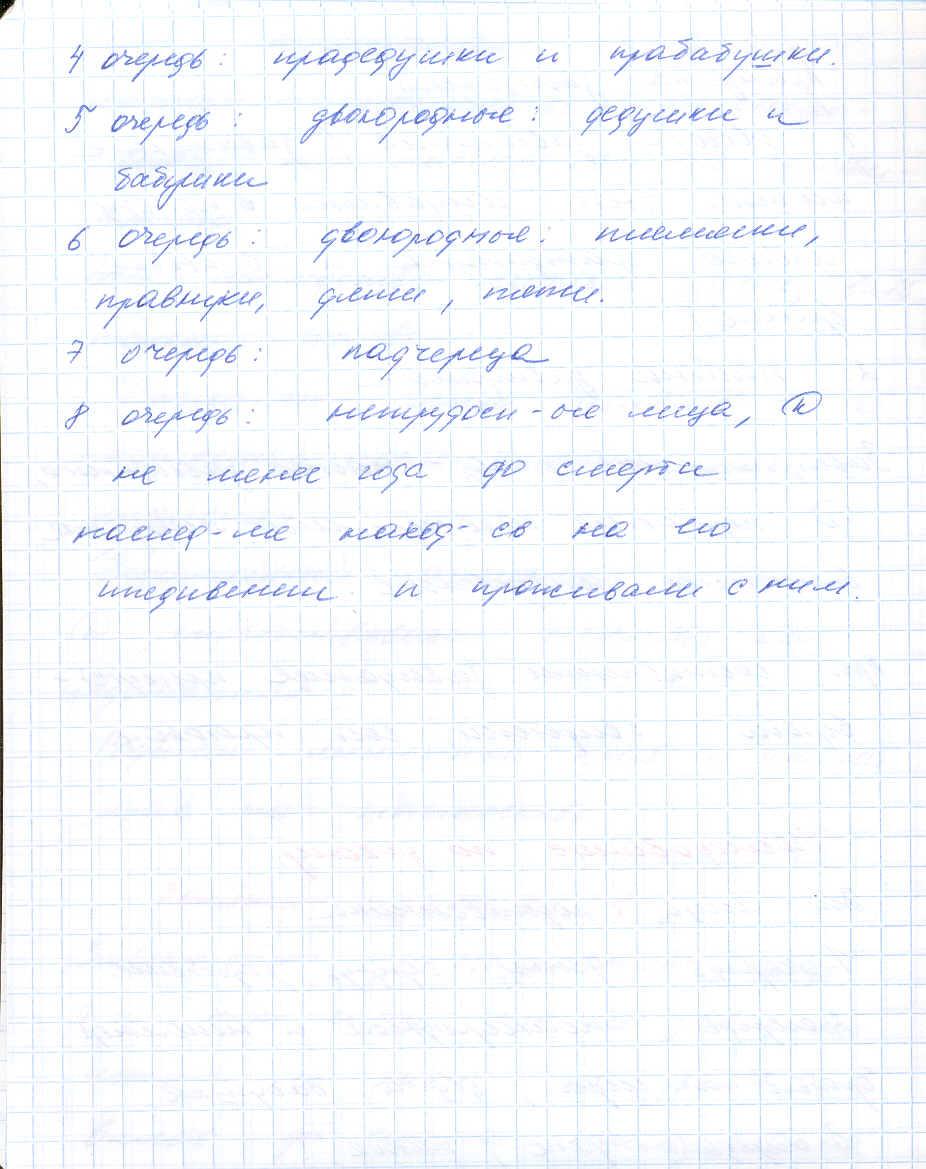 4 очередь: прадедушки и прабабушки.
5 очередь: двоюродные: дедушки и
бабушки
6 очередь: двоюродные: племянники,
правнуки, дяди, тети.
7 очередь: падчерица
8 очередь: нетрудосп-ые лица, к
не менее года до смерти
наслед-ля наход-сь на его
иждивении и проживали с ним.